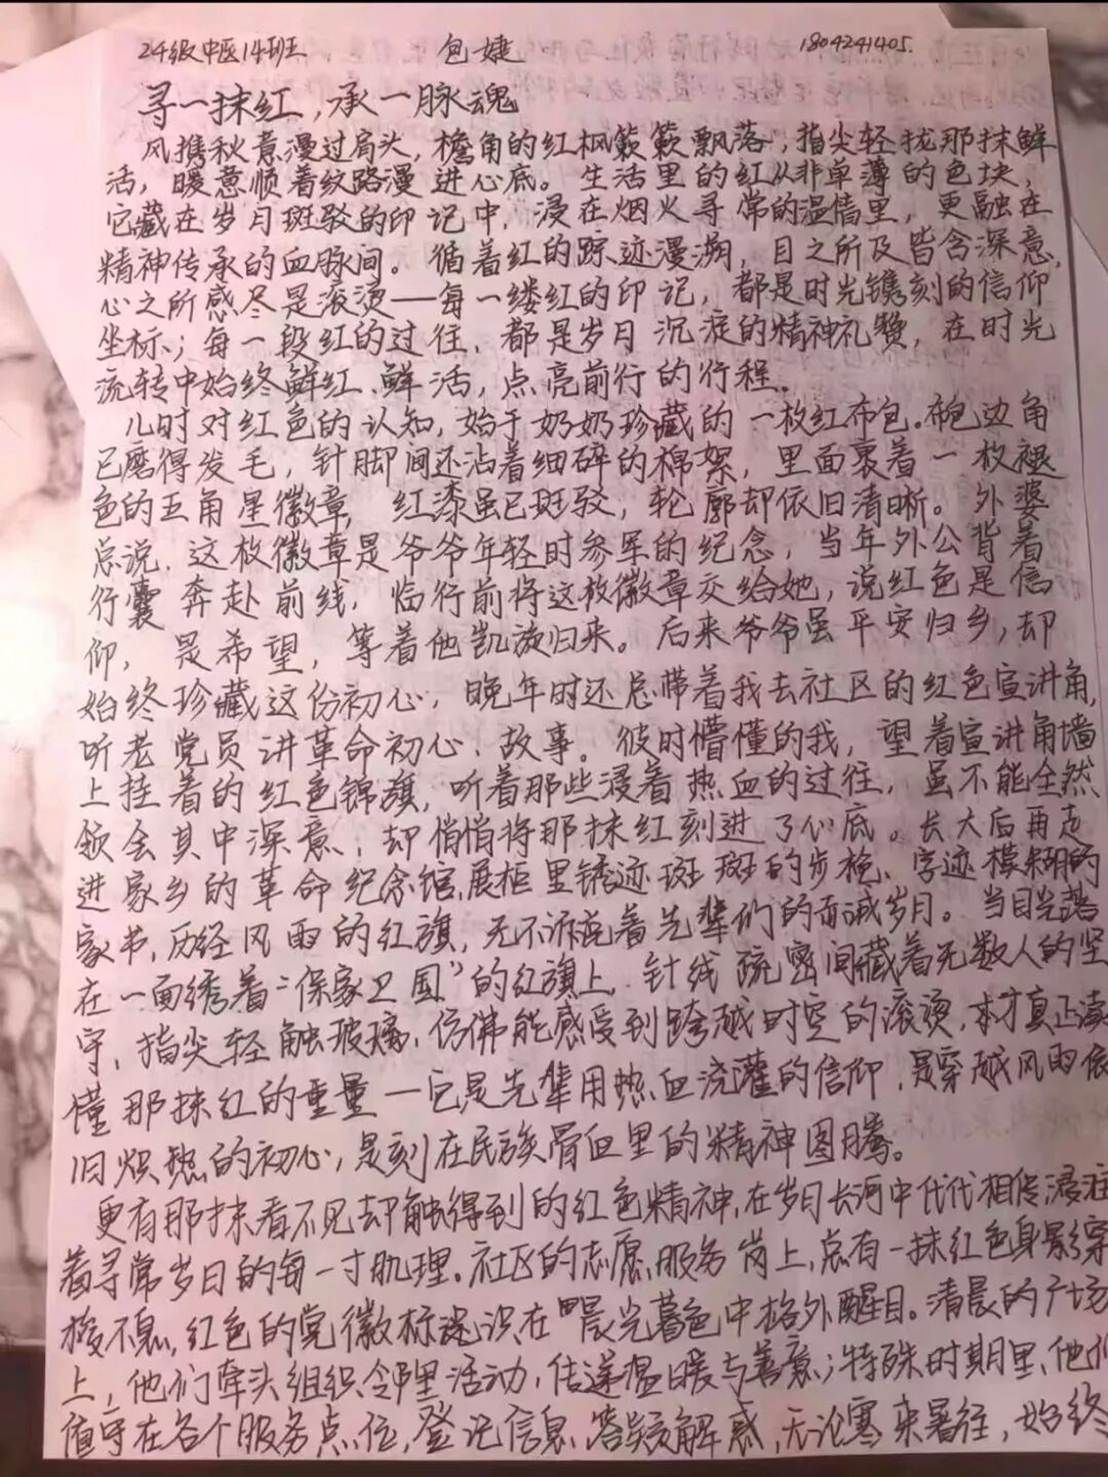 24级中医14班 包婕 1804241405.
寻一抹红,承一脉魂
风携秋意漫过肩头,檐角的红枫簌簌飘落,指尖轻拢那抹鲜
活,暖意顺着纹路漫进心底。生活里的红从非单薄的色块,
它藏在岁月斑驳的印记中,浸在烟火寻常的温情里,更融在
精神传承的血脉间。循着红的踪迹漫溯,目之所及皆含深意,
心之所感尽是滚烫——每一缕红的印记,都是时光镌刻的信仰
坐标、;每一段红的过往,都是岁月沉淀的精神礼赞,在时光
流转中始终鲜红、鲜活,点亮前行的行程。
儿时对红色的认知,始于奶奶珍藏的一枚红布包。布包边角
已磨得发毛,针脚间还沾着细碎的棉絮,里面裹着一枚褪
色的五角星徽章,红漆虽已斑驳,轮廓却依旧清晰。外婆
总说,这枚徽章是爷爷年轻时参军的纪念,当年外公背着
行囊奔赴前线,临行前将这枚徽章交给她,说红色是信
仰,是希望,等着他凯旋归来。后来爷爷虽平安归乡,却
始终珍藏这份初心,晚年时还总带着我去社区的红色宣讲角,
听老党员讲革命初心、故事。彼时懵懂的我,望着宣讲角墙
上挂着的红色锦旗,听着那些浸着热血的过往,虽不能全然
领会其中深意,却悄悄将那抹红刻进了心底。长大后再走
进家乡的革命纪念馆,展柜里锈迹斑斑的步枪、字迹模糊的
家书,历经风雨的红旗,无不诉说着先辈们的赤诚岁月。当目光落
在一面绣着“保家卫国”的红旗上,针线疏密间藏着无数人的坚
守,指尖轻触玻璃,仿佛能感受到跨越时空的滚烫,才真正读
懂那抹红的重量—它是先辈用热血浇灌的信仰,是穿越风雨依
旧炽热的初心,是刻在民族骨血里的精神图腾。
更有那抹看不见却触得到的红色精神,在岁月长河中代代相传,浸注
着寻常岁月的每一寸肌理。社区的志愿服务岗上,总有一抹红色身影穿
梭不息,红色的党徽标识在晨光暮色中格外醒目。清晨的广场
上,他们牵头组织邻里活动,传递温暖与善意;特殊时期里,他们
值守在各个服务点位,登记信息、答疑解惑,无论寒来暑往,始终